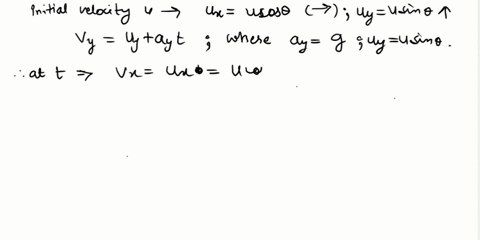 Initial velocity u → ux = ucosθ (→) ; uy = usinθ ↑
Vy = uy + ayt ; where ay = g ; uy = usinθ.
∴ at t ⇒ Vx = ux = u